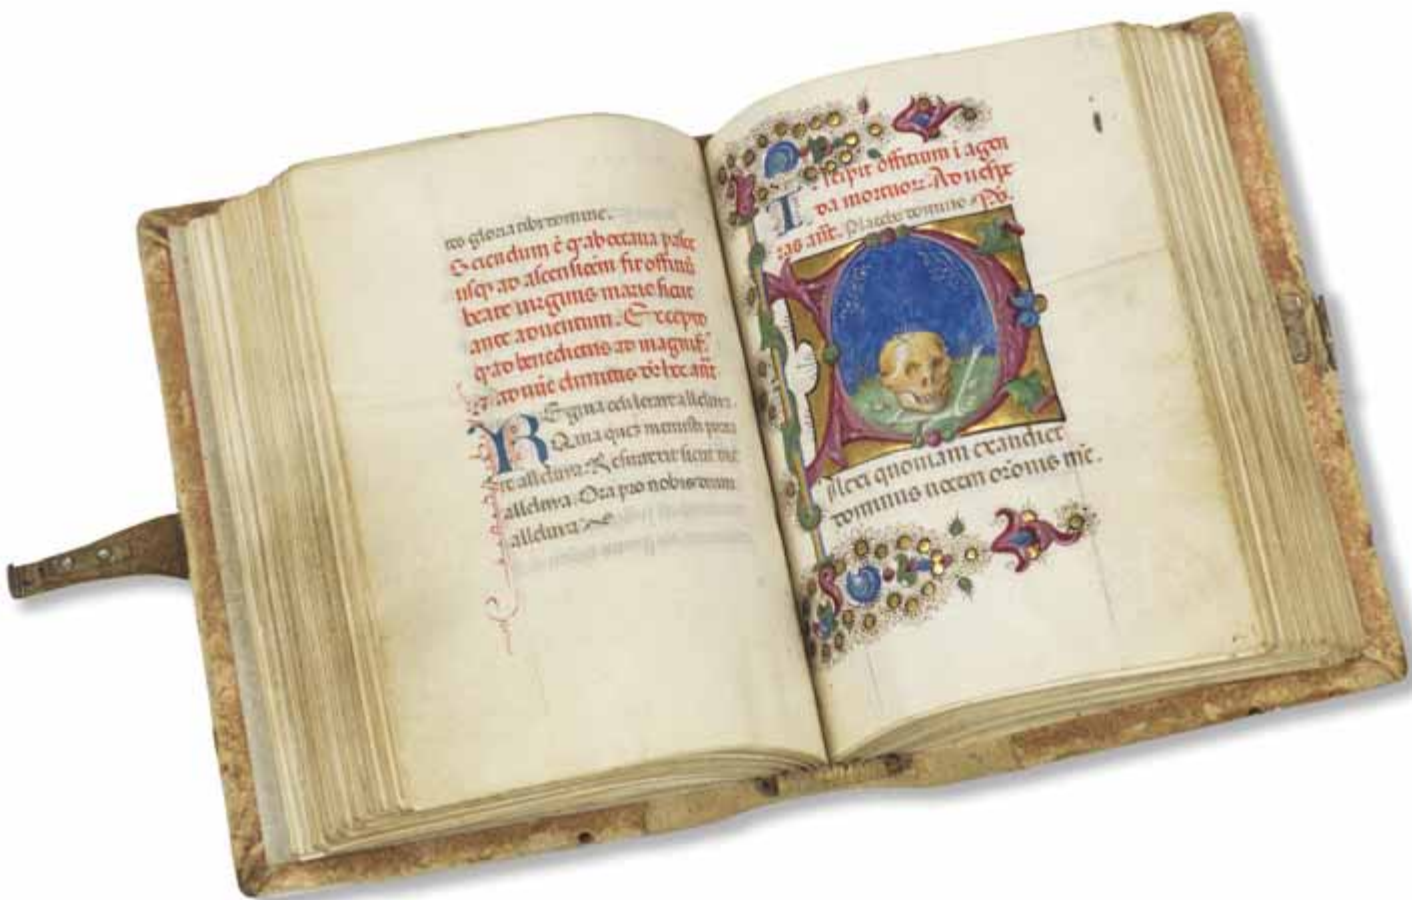 eo gloria tibi domine.
Sciendum ē q̄ ab octaua pasce
usq̢ ad ascensiōem fit offitiū
beate uirginis marie sicut
ante aduentum. Excepto
q̄ ad benedictus ad magnif̄.
⁊ ad nūc dimittis dr̄ hec añt
REgina celi letare alleluia.
Quia quez meruisti porta
re alleluia. Resurrexit sicut dixit
alleluia. Ora pro nobis deum
alleluia
Incipit offitium ī agen
da mortuoꝝ. Ad uesp̄
ras añt. Placebo domino. Ps̄.
Dilexi quoniam exaudiet
dominus uocem orōnis mēe.